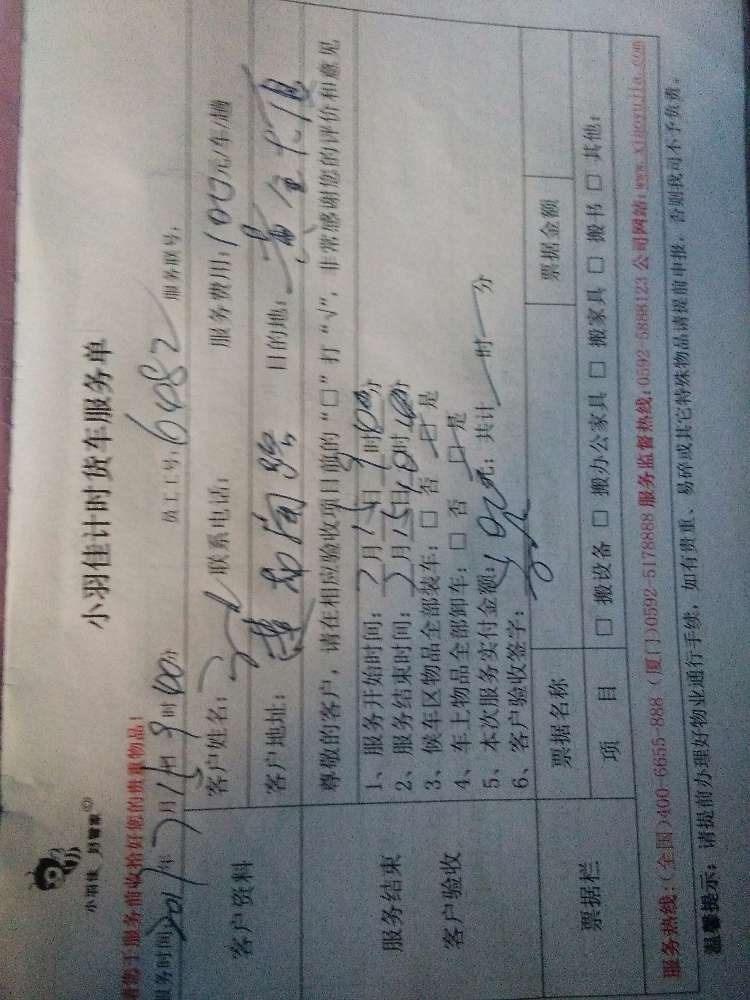 小羽佳 好管家
小羽佳计时货车服务单
请您于服务前收拾好您的贵重物品!
服务时间: 年 7月15日9时00分 员工工号: 6482 服务联号:
客户资料
客户姓名: 联系电话: 服务费用: 100元/车/趟
客户地址: 目的地: 黄金大厦
尊敬的客户, 请在相应验收项目前的“□”打“√”, 非常感谢您的评价和意见
服务结束
客户验收
1、服务开始时间: 7月15日9时00分
2、服务结束时间: 7月15日10时00分
3、候车区物品全部装车: □ 否 □ 是
4、车上物品全部卸车: □ 否 □ 是
5、本次服务实付金额: 元; 共计 时 分
6、客户验收签字:
票据栏
票据名称 票据金额
项 目 □ 搬设备 □ 搬办公家具 □ 搬家具 □ 搬书 □ 其他:
服务热线:(全国)400-6655-888 (厦门)0592-5178888 服务监督热线:0592-5888123 公司网站:www.xiaoyujia.com
温馨提示: 请提前办理好物业通行手续, 如有贵重、易碎或其它特殊物品请提前申报, 否则我司不予负责。